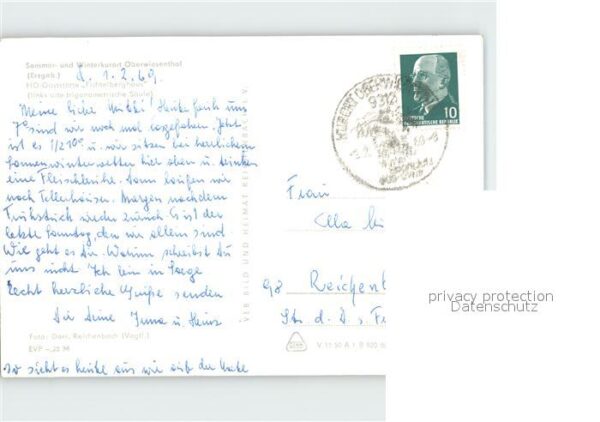 Sommer- und Winterkurort Oberwiesenthal
(Erzgeb.) d. 1.2.69.
HO-Gaststätte „Fichtelberghaus"
(links die trigonometrische Säule)
Meine liebe Mutti! Heute früh um
7° sind wir noch mal losgefahren. Jetzt
ist es 1/2 10° u. wir sitzen bei herrlichem
Sonnenwinterwetter hier oben u. trinken
eine Fleischbrühe. Dann laufen wir
nach Tellerhäuser. Morgen nach dem
Frühstück wieder zurück. Es ist der
letzte Sonntag, den wir allein sind
Wie geht es Dir. Warum schreibst Du
uns nicht. Ich bin in Sorge
Recht herzliche Grüße senden
Dir Deine u. Heinz
Foto: Darr, Reichenbach (Vogtl.)
EVP -,25 M
So sieht es heute aus wie auf der Karte
VEB BILD UND HEIMAT REICHENBACH I. V.
V 11 50 A 1 B 920
KURORT OBERWIESENTHAL
9312
10
DEUTSCHE
DEMOKRATISCHE REPUBLIK
Frau
Ella
98 Reichenb
Str. d. D. S. F
privacy protection
Datenschutz